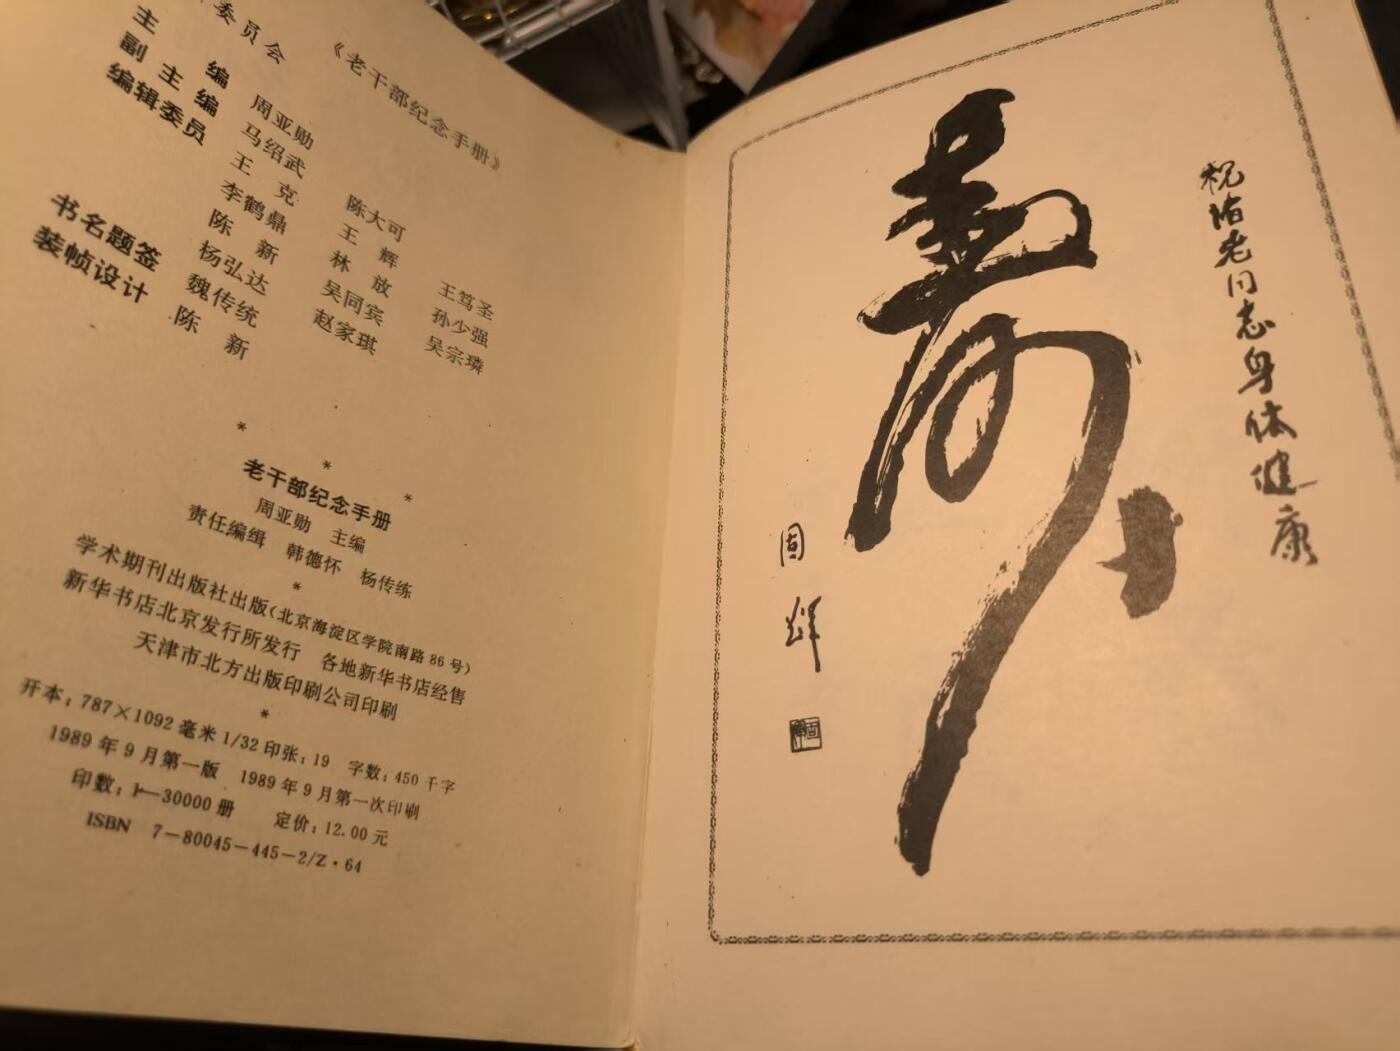 委员会
《老干部纪念手册》
主编 周亚勋
副主编 马绍武 陈大可
编辑委员 王克 王辉 王笃圣
李鹤鼎 林放 孙少强
陈新 吴同宾 吴宗璘
杨弘达 赵家琪
书名题签 魏传统
装帧设计 陈新
* * *
老干部纪念手册
周亚勋 主编
责任编缉 韩德怀 杨传练
*
学术期刊出版社出版(北京海淀区学院南路86号)
新华书店北京发行所发行 各地新华书店经售
天津市北方出版印刷公司印刷
*
开本:787×1092毫米1/32印张:19 字数:450千字
1989年9月第一版 1989年9月第一次印刷
印数:1—30000册 定价:12.00元
ISBN 7-80045-445-2/Z·64
祝老同志身体健康
寿
固辉